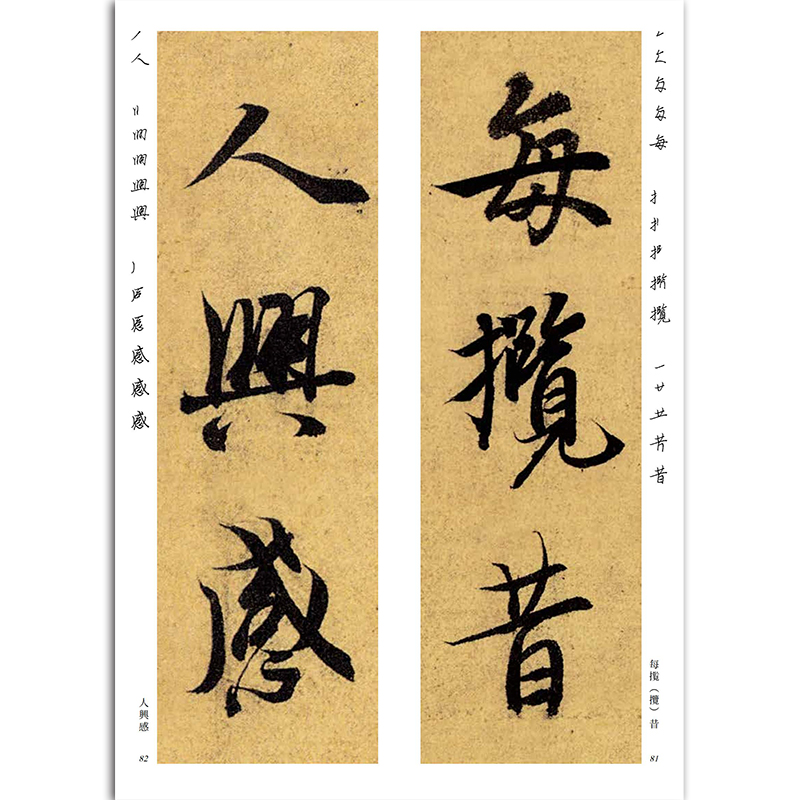 每攬昔
每揽（攬）昔
81
人興感
人興感
82